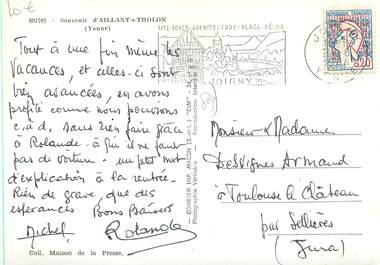 10€
891707 - Souvenir d'AILLANT-s-THOLON
(Yonne)
SITE-FORÊT-ARCHITECTURE-PLAGE-PÊCHE
JOIGNY
0,20
Tout à une fin même les
vacances, et celles-ci sont
bien avancées, en avons
profité comme nous pouvions
c.à.d. sans rien faire grâce
à Rolande. à fin il ne faut
pas de voiture - un petit mot
d'explication à la rentrée.
Rien de grave, que des
espérances Bons Baisers
Michel Rolande
Coll. Maison de la Presse.
COMBIER IMP. MACON (S.-et-L.) "CIM"
Photographie Véritable
Monsieur & Madame
DesVignes Armand
à Toulouse le Château
par Sellières
(Jura)